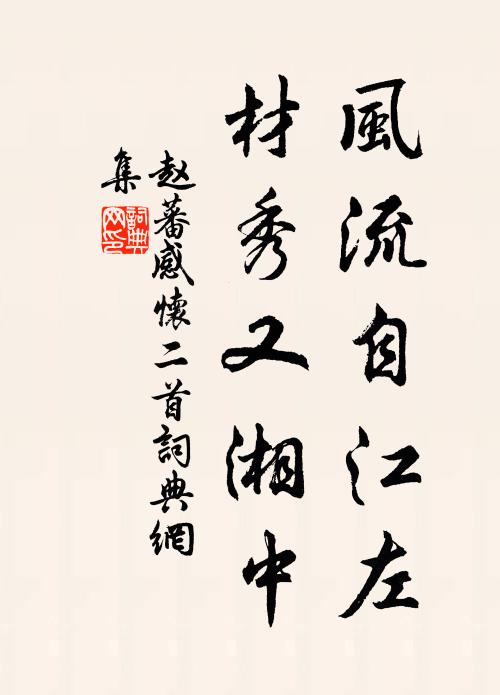 風流自江左
材秀又湘中
赵蕃感懷二首詞典網
集
詞典
网印